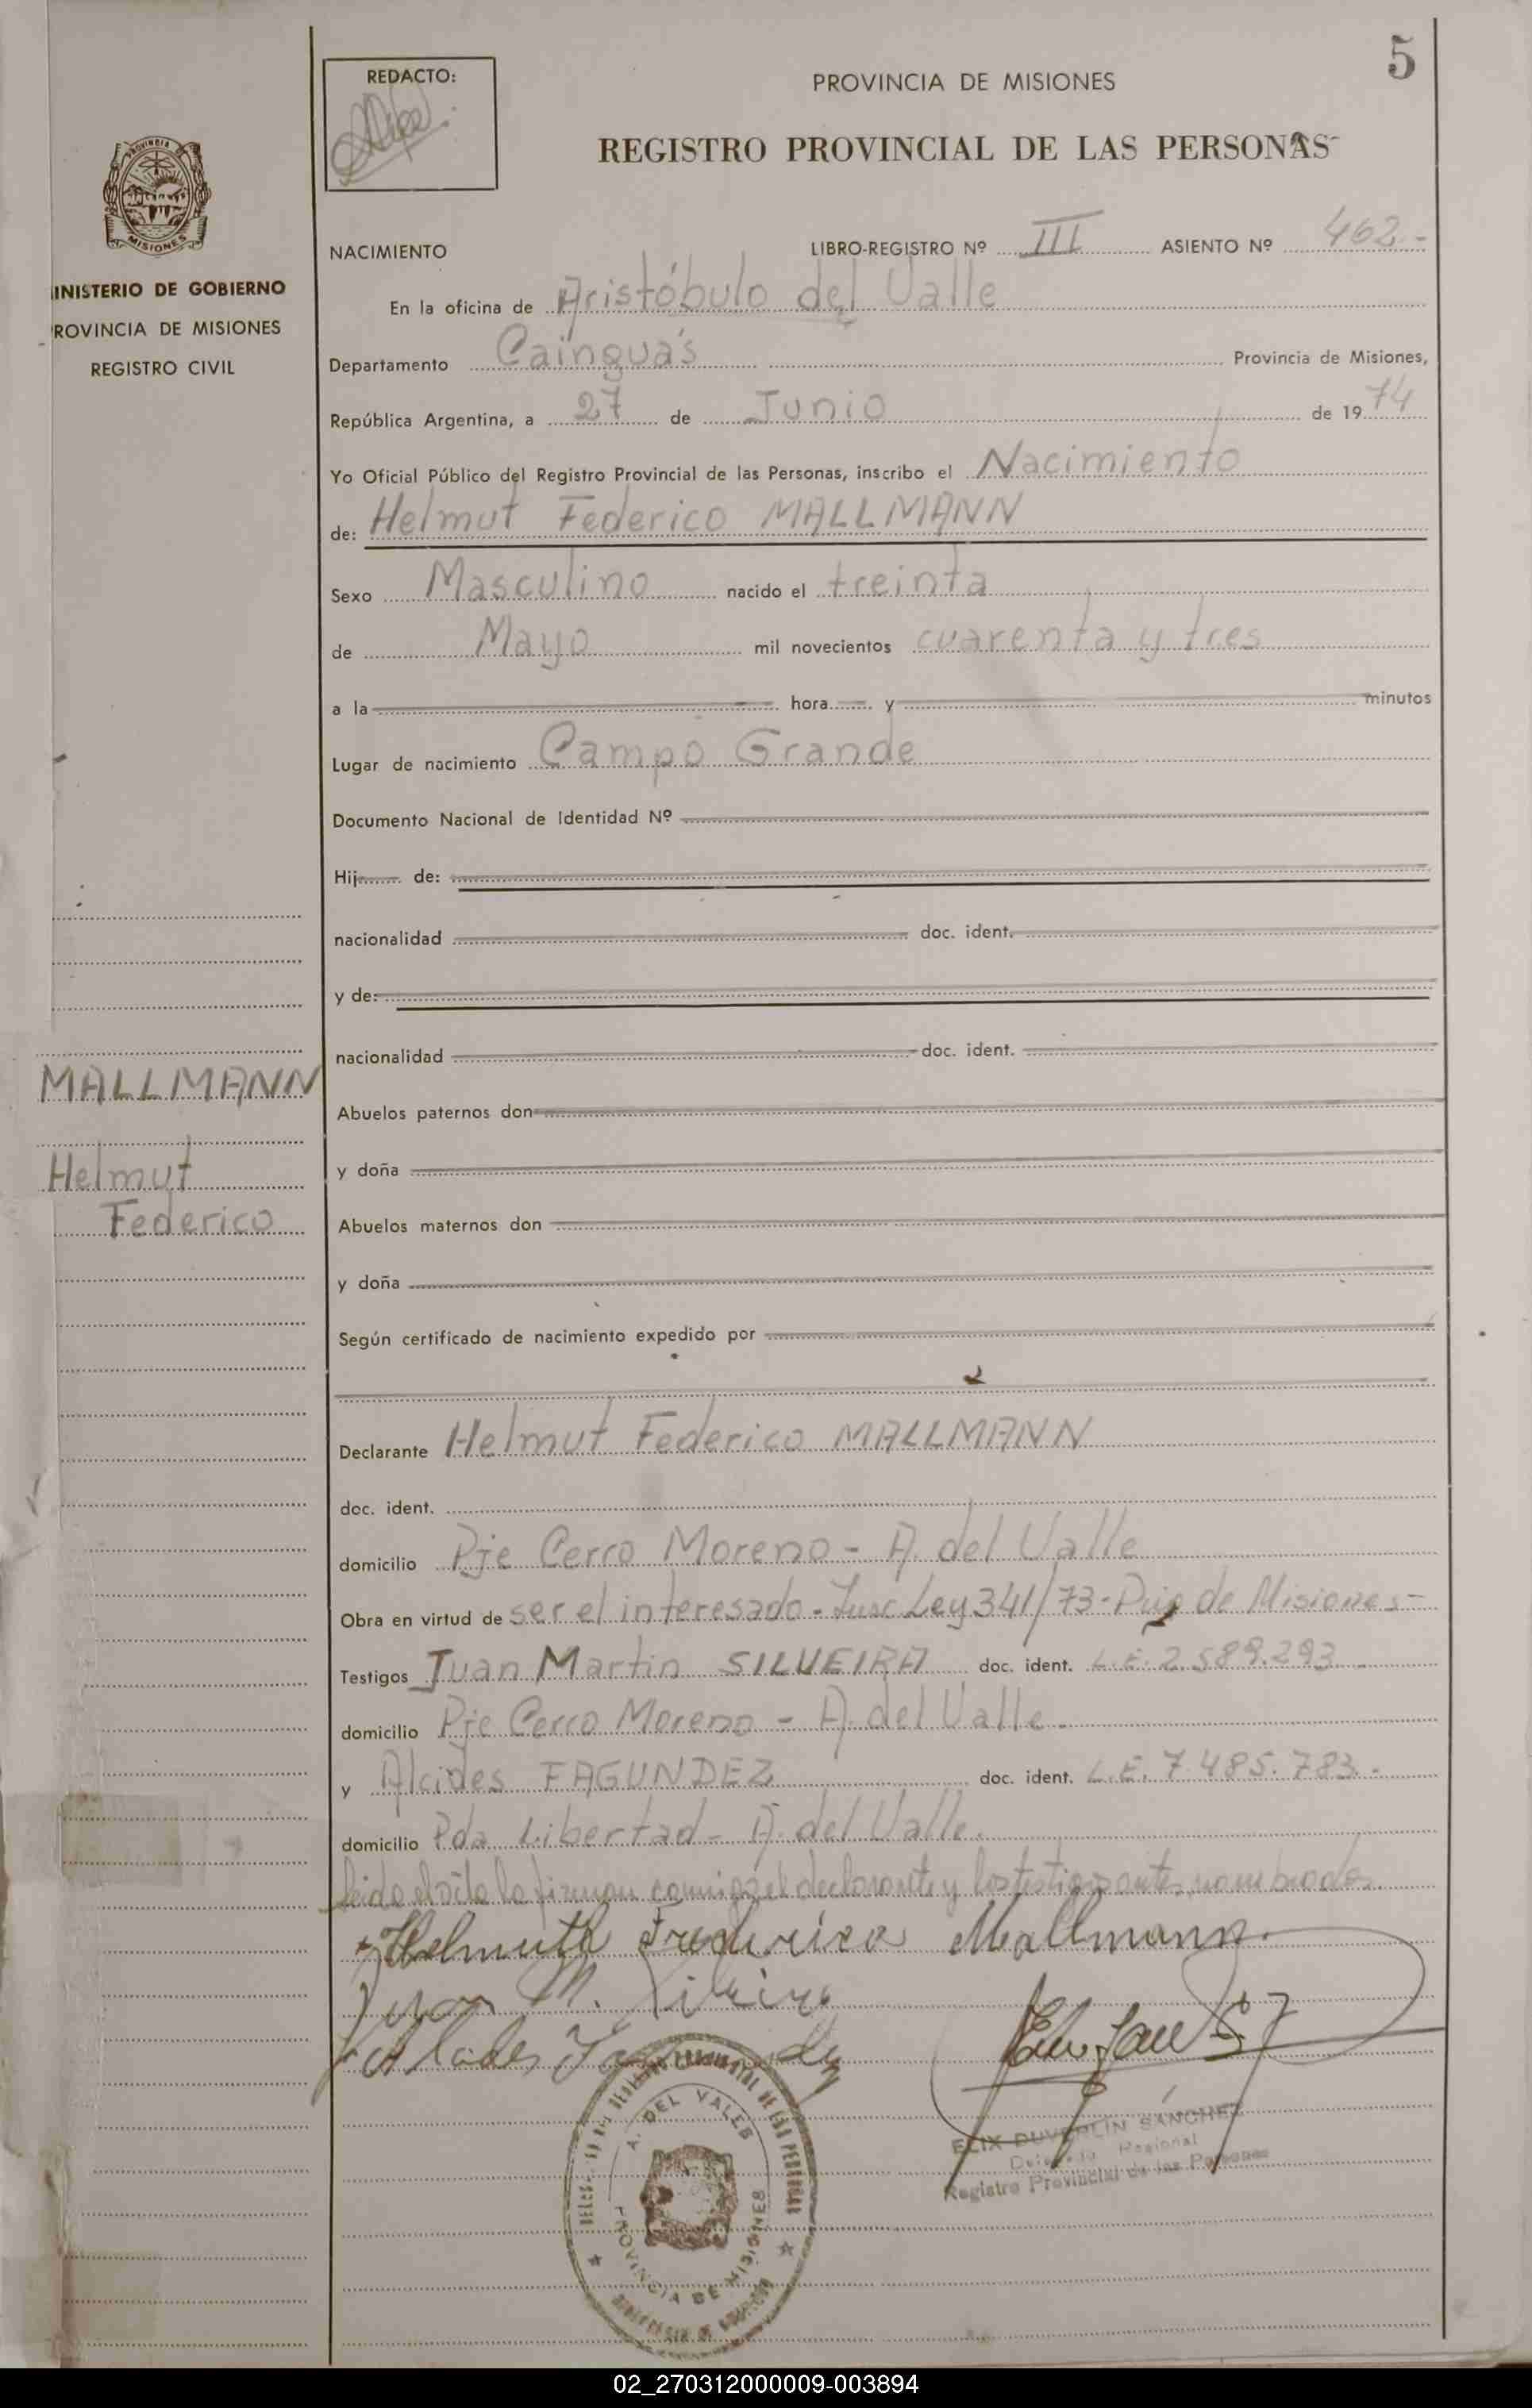 5
REDACTO:
PROVINCIA DE MISIONES
REGISTRO PROVINCIAL DE LAS PERSONAS
PROVINCIA
MISIONES
INISTERIO DE GOBIERNO
ROVINCIA DE MISIONES
REGISTRO CIVIL
NACIMIENTO LIBRO-REGISTRO Nº III ASIENTO Nº 462.-
En la oficina de Aristóbulo del Valle
Departamento Cainguás Provincia de Misiones,
República Argentina, a 27 de Junio de 1974
Yo Oficial Público del Registro Provincial de las Personas, inscribo el Nacimiento
de: Helmut Federico MALLMANN
Sexo Masculino nacido el treinta
de Mayo mil novecientos cuarenta y tres
a la hora y minutos
Lugar de nacimiento Campo Grande
Documento Nacional de Identidad Nº
Hij de:
nacionalidad doc. ident.
y de:
nacionalidad doc. ident.
MALLMANN
Helmut
Federico
Abuelos paternos don
y doña
Abuelos maternos don
y doña
Según certificado de nacimiento expedido por
Declarante Helmut Federico MALLMANN
doc. ident.
domicilio Pje Cerro Moreno - A. del Valle
Obra en virtud de ser el interesado - Insc Ley 341/73 - de Misiones -
Testigos Juan Martin SILVEIRA doc. ident. L.E. 2.589.293
domicilio Pje Cerro Moreno - A. del Valle -
y Alcides FAGUNDEZ doc. ident. L.E. 7.485.783.-
domicilio Pda Libertad - A. del Valle.
la firman el declarante y los testigos antes nombrados
Helmuth Frederico Mallmann
Juan M. Silveira
A. DEL VALLE
PROVINCIA DE MISIONES
SÁNCHEZ
Delegado Regional
Registro Provincial de las Personas
02_270312000009-003894